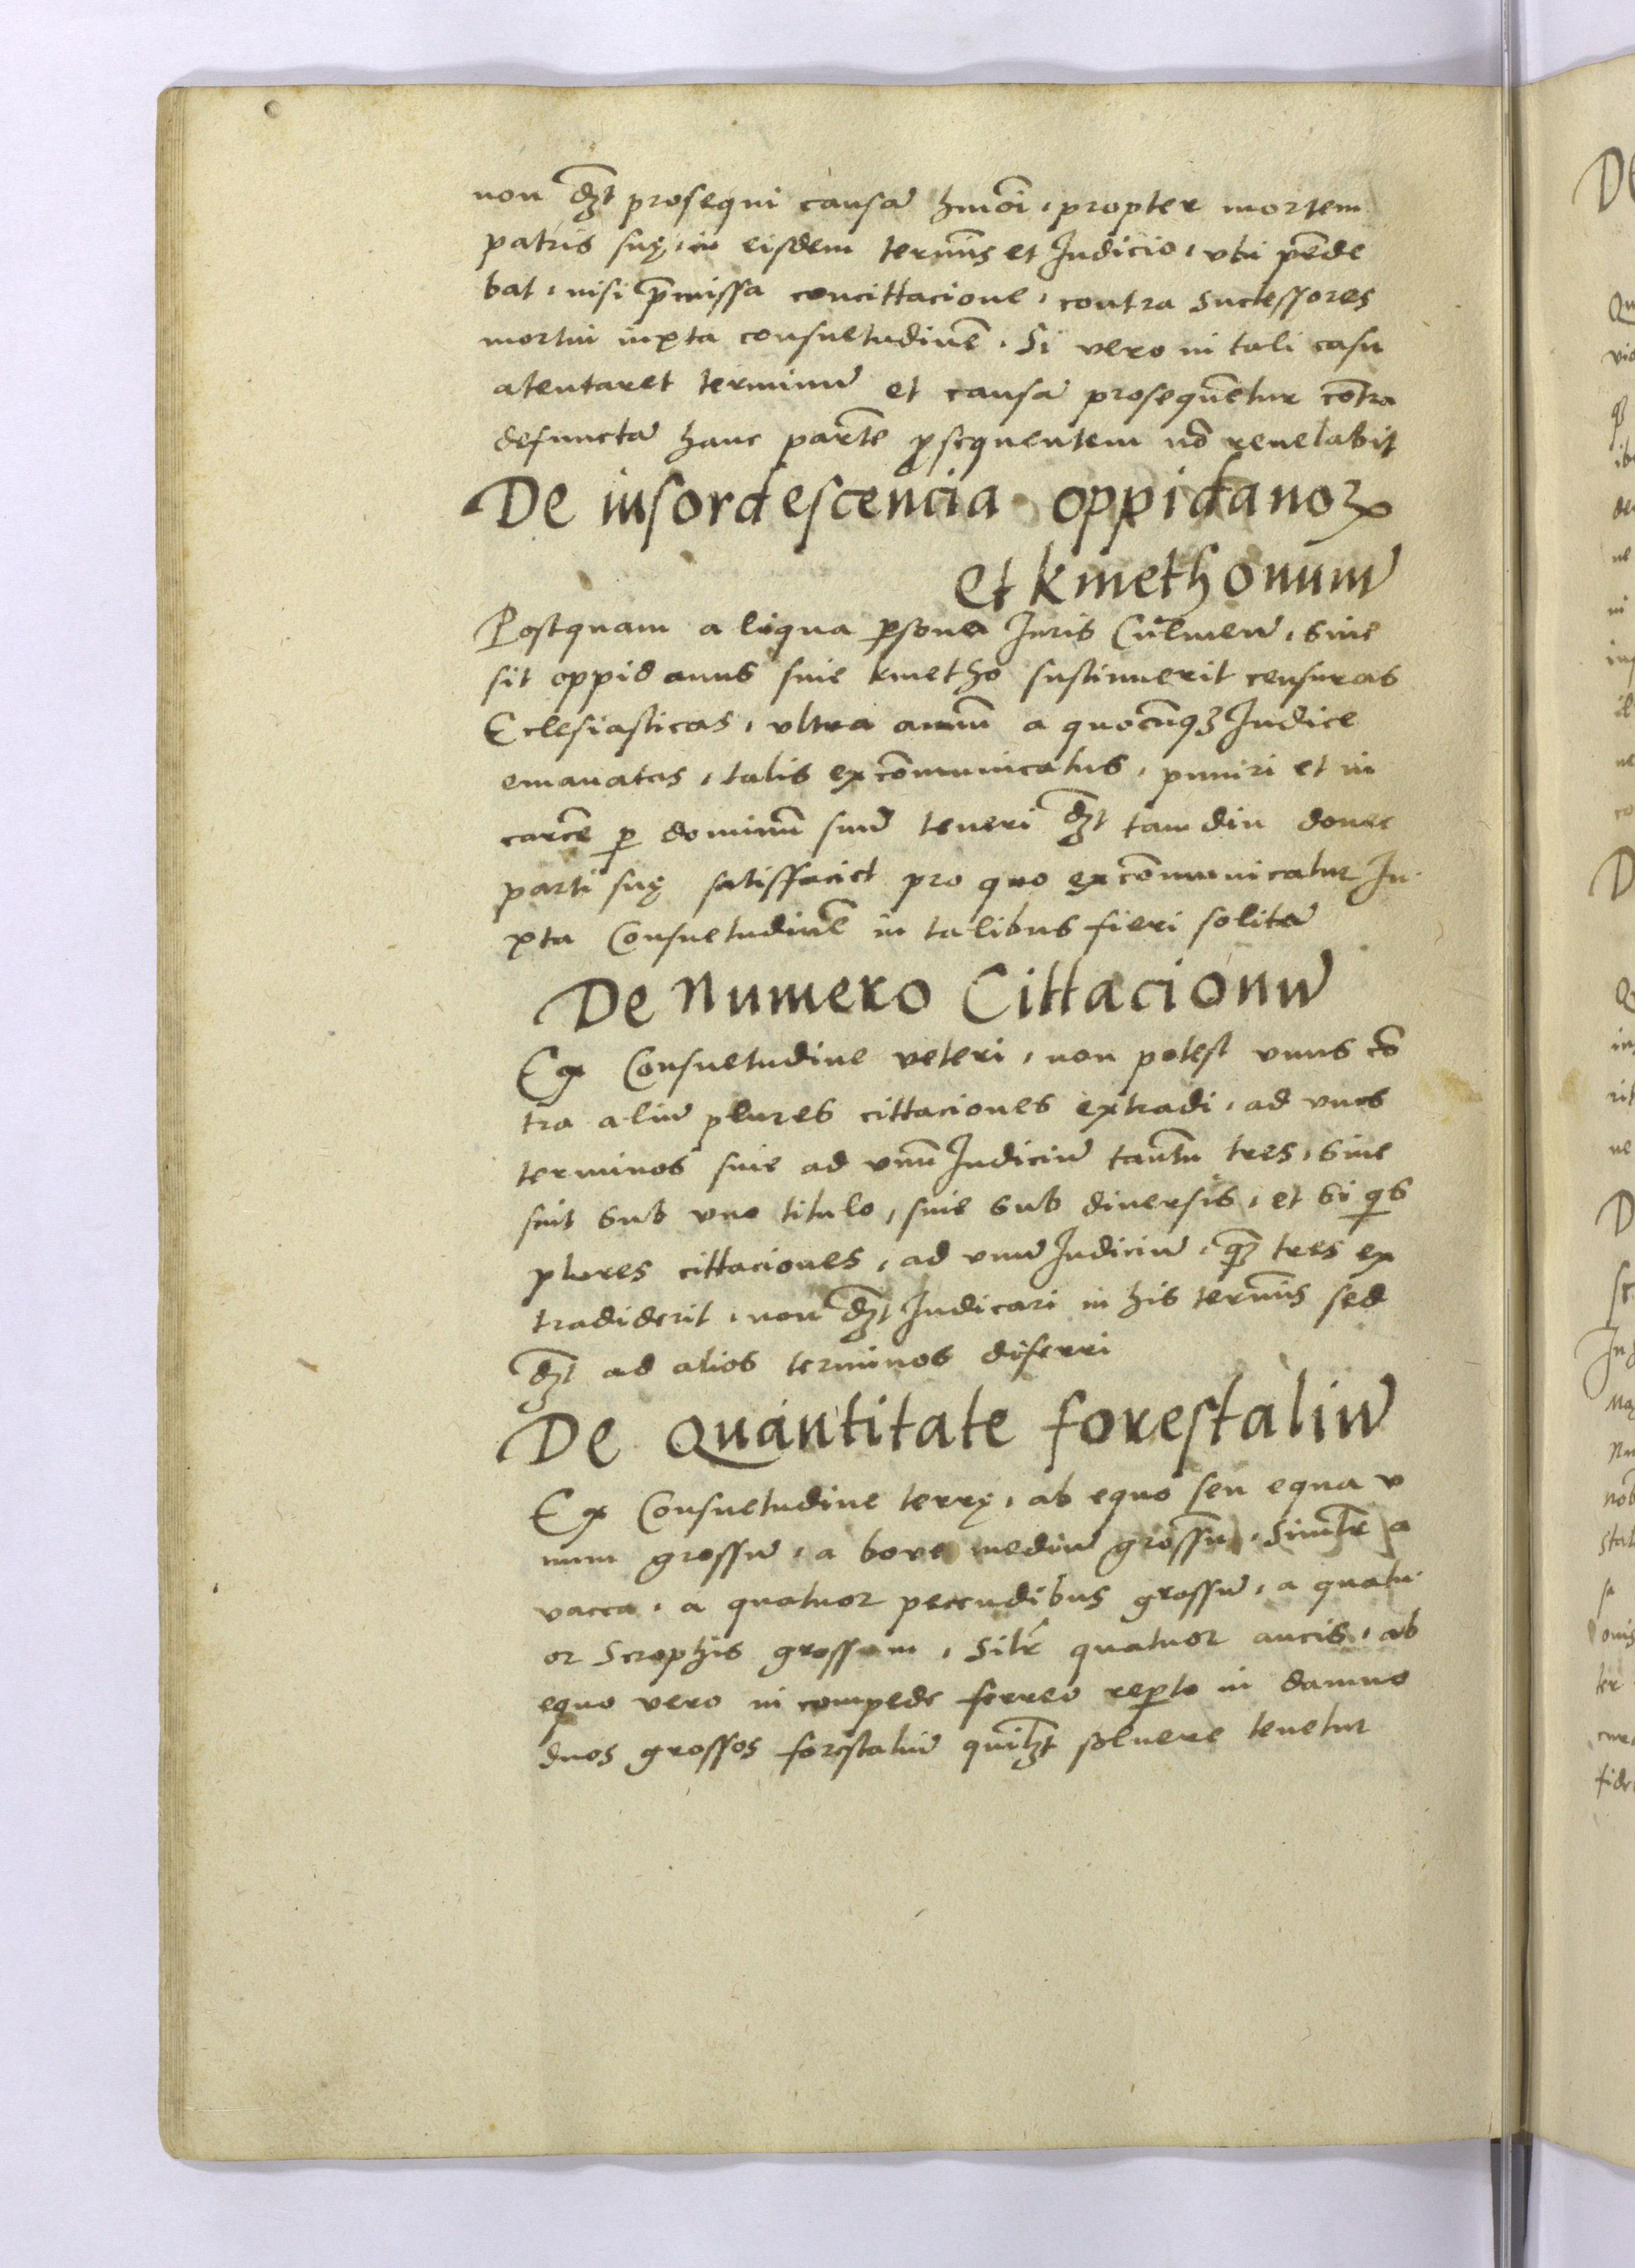 non dꝫt prosequi causā hmōi, propter mortem
patris suę, in eisdem termīs et Iudicio, vbi pēde
bat, nisi p̄missa concittacione, contra successores
mortui iuxta consuetudinē. Si vero in tali casu
atentaret terminū et causā prosequētur cōtra
defunctā hanc partē ꝓsequentem nō reuelabit
De insordescencia oppidanoꝝ
et kmethonum
Postquam aliqua ꝑsona Iuris Culmeñ, siue
sit oppidanus siue kmetho sustinuerit censuras
Eclesiasticas, vltra annū a quocūqꝫ Iudice
emanatas, talis excōmunicatus, puniri et in
carcē ꝑ dominū suū teneri dꝫt tamdiu donec
parti suę satisffaciet pro quo excōmunicatur Iu
xta Consuetudinē in talibus fieri solitā
De Numero Cittacionū
Ex Consuetudine veteri, non potest vnus cō
tra aliū plures cittaciones extradi, ad vnos
terminos siue ad vnū Iudiciū tantū tres, siue
sint sub vno titulo, siue sub diuersis, et si qis
plures cittaciones, ad vnū Iudiciū, qꝫ tres ex
tradiderit, non dꝫt Iudicari in his termīs sed
dꝫt ad alios terminos diferri
De Quantitate forestaliū
Ex Consuetudine terrę, ab equo seu equa v
num grossū, a boue mediū grossū, Similr̄ a
vacca, a quatuor peccudibus grossū, a quatu
or Scrophis grossum, Silr̄ quatuor aucis, ab
equo vero in compede ferreo reꝑto in damno
duos grossos forestaliū quilꝫt soluere tenetur